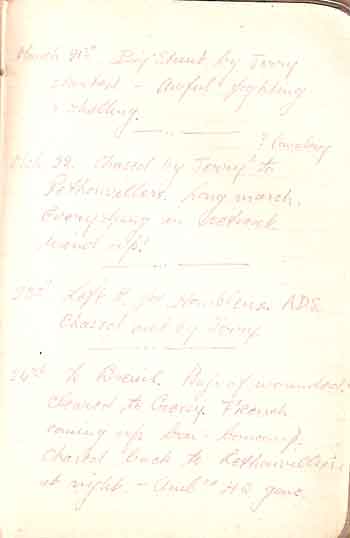 March 21st Big Stunt by Jerry
started - Awful fighting
& shelling.
? Cavalry
Mch. 22. Chased by Jerry to
Rethonvillers. Long march.
Everything in
wind up!
23rd Left R. for ADS.
Chased out by Jerry
24th To Buigny of wounded.
cleared to French
coming up
chased back to Rethonvillers
at night. - Amb ce HQ gone.